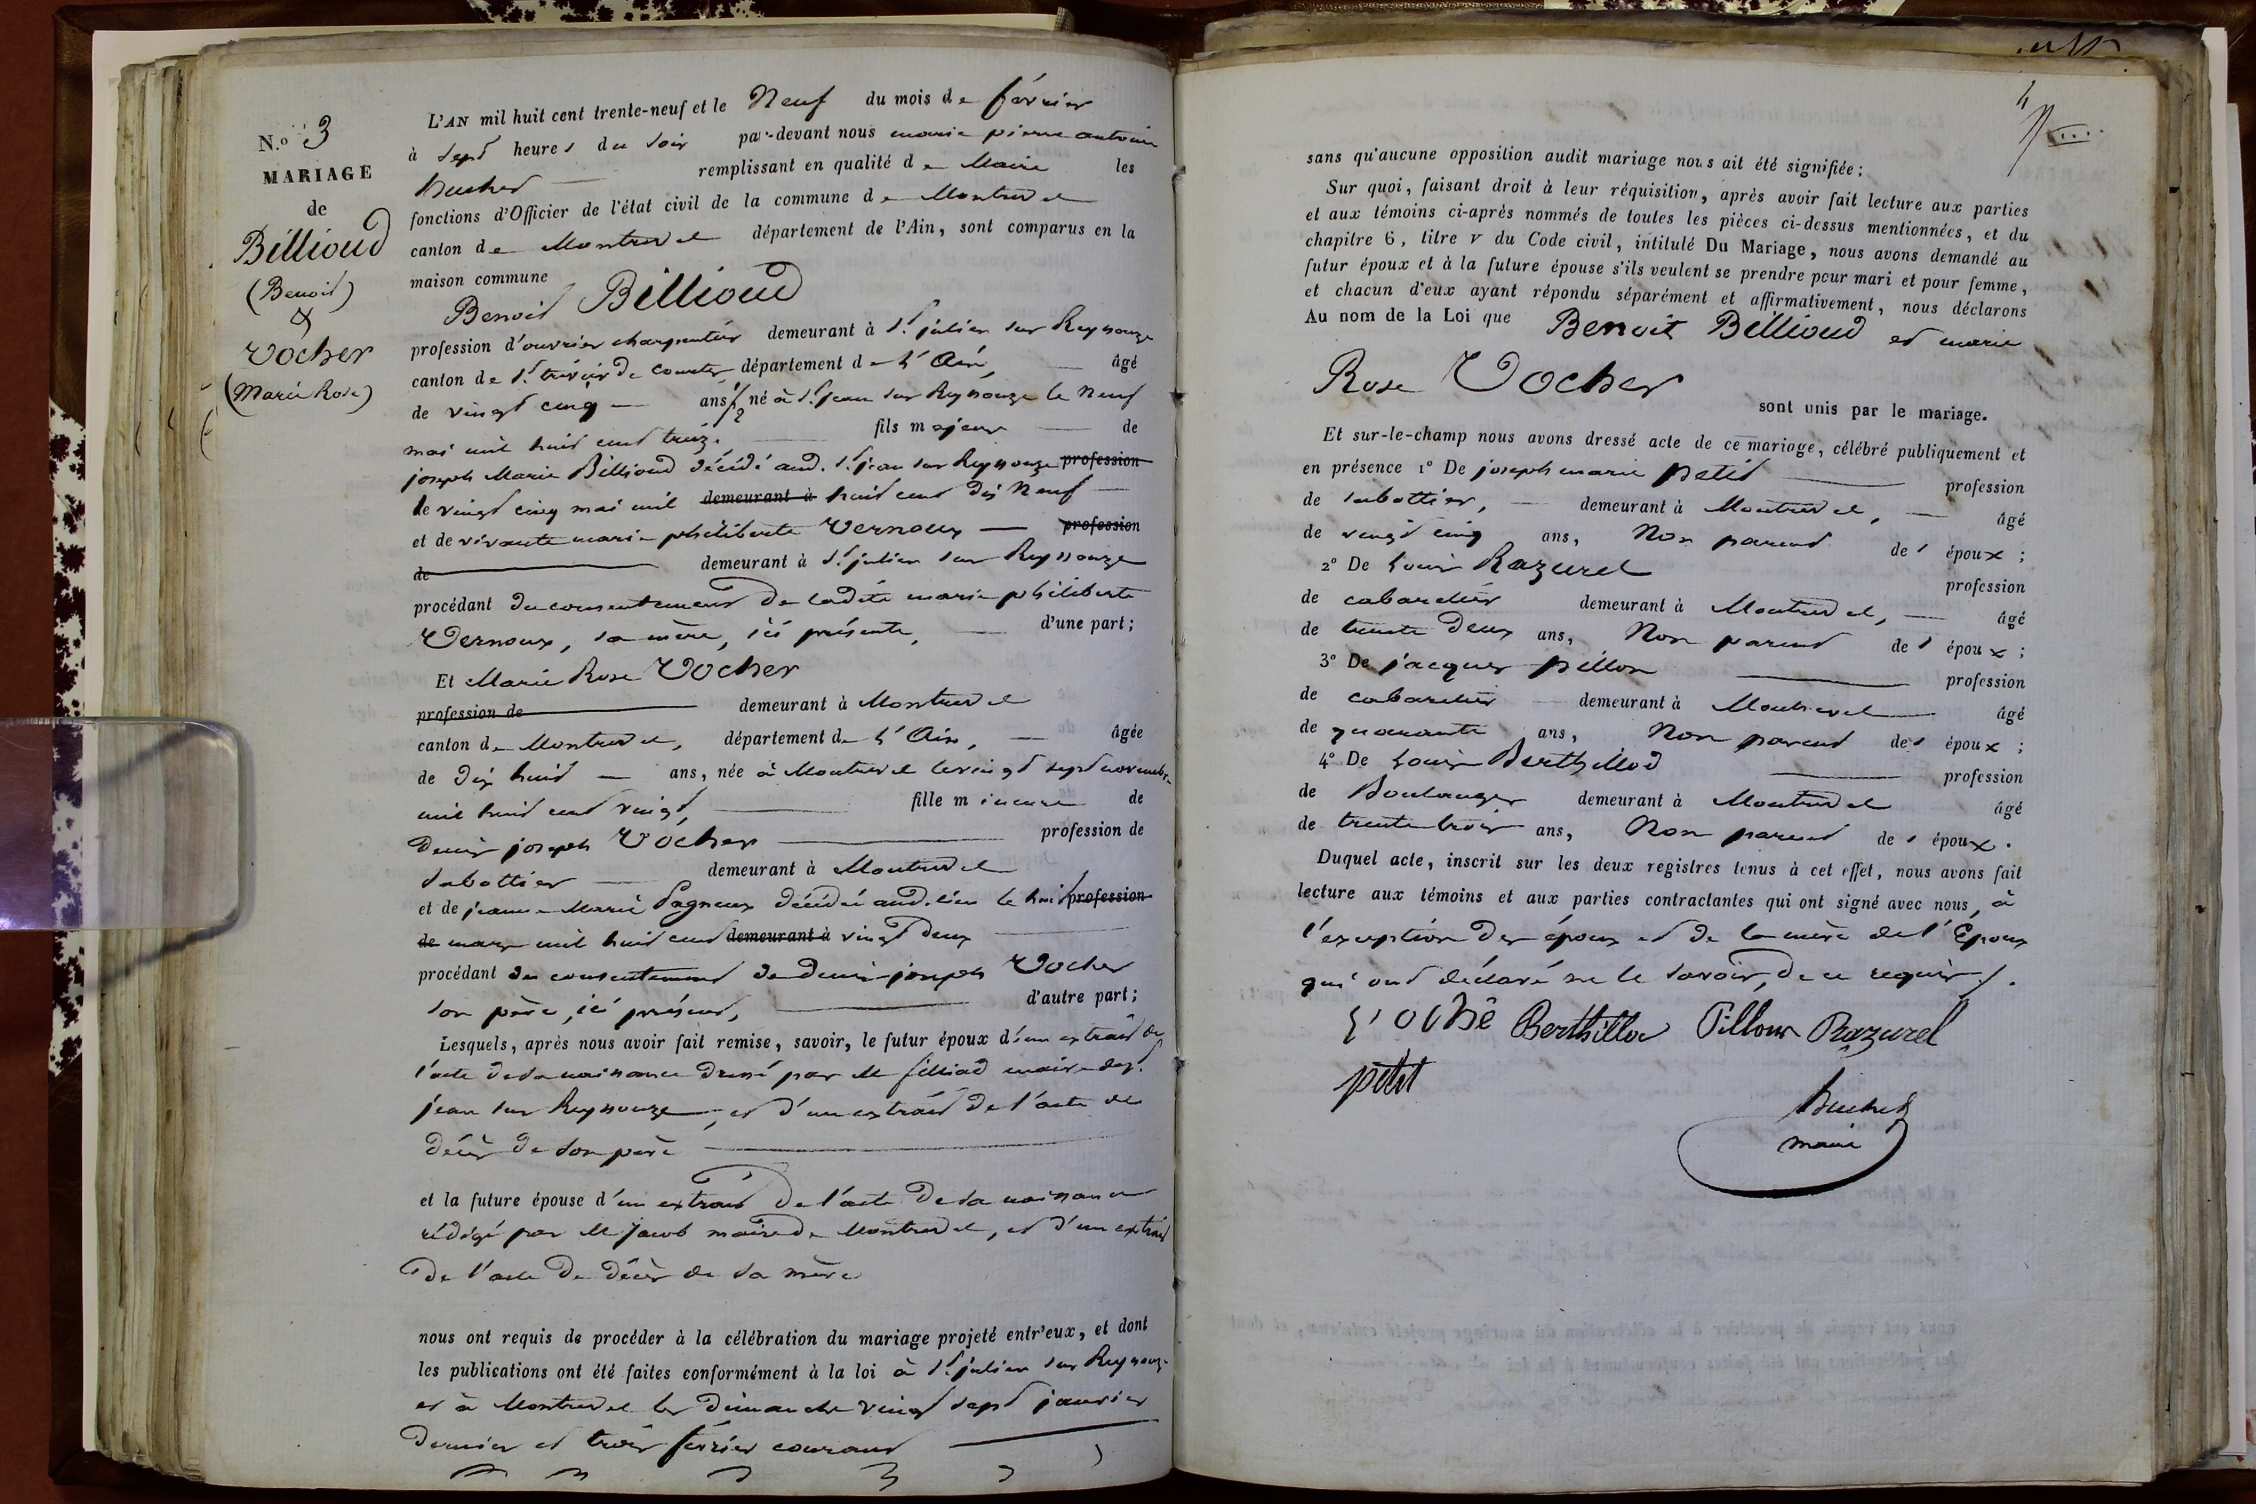 N.o 3
MARIAGE
de
Billioud
(Benoit)
&
Vocher
(Marie Rose)
L'AN mil huit cent trente-neuf et le Neuf du mois de février
à sept heures du soir par-devant nous marie pierre antoine
Buchet remplissant en qualité de Maire les
fonctions d'Officier de l'état civil de la commune de Montrevel
canton de Montrevel département de l'Ain, sont comparus en la
maison commune
Benoit Billioud
profession d'ouvrier charpentier demeurant à St. julien sur Reyssouze
canton de St. trivier de Courtes département de l'Ain, âgé
de vingt cinq ans 1/2 né à St. jean sur Reyssouze le Neuf
mai mil huit cent treize fils majeur de
joseph Marie Billioud décédé aud. St. jean sur Reyssouze profession
le vingt cinq mai mil demeurant à huit cent dix Neuf
et de vivante marie philiberte Vernoux profession
de demeurant à St. julien sur Reyssouze
procédant du consentement de ladite marie philiberte
Vernoux, sa mère, ici présente, d'une part;
Et Marie Rose Vocher
profession de demeurant à Montrevel
canton de Montrevel, département de l'Ain, âgée
de dix huit ans, née à Montrevel le vingt sept novembre
mil huit cent vingt, fille mineure de
denis joseph Vocher profession de
sabottier demeurant à Montrevel
et de jeanne Marie Pagneux décédée aud. lieu le huit profession
de mars mil huit cent demeurant à vingt deux
procédant du consentement de denis joseph Vocher
son père, ici présent, d'autre part;
Lesquels, après nous avoir fait remise, savoir, le futur époux d'un extrait de
l'acte de sa naissance dressé par M filliod maire de St.
jean sur Reyssouze, et d'un extrait de l'acte de
décès de son père
et la future épouse d'un extrait de l'acte de sa naissance
rédigé par M Jacob maire de Montrevel, et d'un extrait
de l'acte de décès de sa mère
nous ont requis de procéder à la célébration du mariage projeté entr'eux, et dont
les publications ont été faites conformément à la loi à St. julien sur Reyssouze
et à Montrevel les dimanche vingt sept janvier
dernier et trois février courant
4
sans qu'aucune opposition audit mariage nous ait été signifiée;
Sur quoi, faisant droit à leur réquisition, après avoir fait lecture aux parties
et aux témoins ci-après nommés de toutes les pièces ci-dessus mentionnées, et du
chapitre 6, titre v du Code civil, intitulé Du Mariage, nous avons demandé au
futur époux et à la future épouse s'ils veulent se prendre pour mari et pour femme,
et chacun d'eux ayant répondu séparément et affirmativement, nous déclarons
Au nom de la Loi que Benoit Billioud et marie
Rose Vocher
sont unis par le mariage.
Et sur-le-champ nous avons dressé acte de ce mariage, célébré publiquement et
en présence 1o De joseph marie petit profession
de sabottier, demeurant à Montrevel, âgé
de vingt cinq ans, Non parent des époux;
2o De Louis Razurel profession
de cabaretier demeurant à Montrevel, âgé
de trente deux ans, Non parent des époux;
3o De jacques pillon profession
de cabaretier demeurant à Montrevel âgé
de quarante ans, Non parent des époux;
4o De Louis Berthillod profession
de Boulanger demeurant à Montrevel âgé
de trente trois ans, Non parent des époux.
Duquel acte, inscrit sur les deux registres tenus à cet effet, nous avons fait
lecture aux témoins et aux parties contractantes qui ont signé avec nous, à
l'exception des époux et de la mère de l'Epoux
qui ont déclaré ne le savoir, de ce requis.
Berthillod Pillon Razurel
petit
Buchet
maire